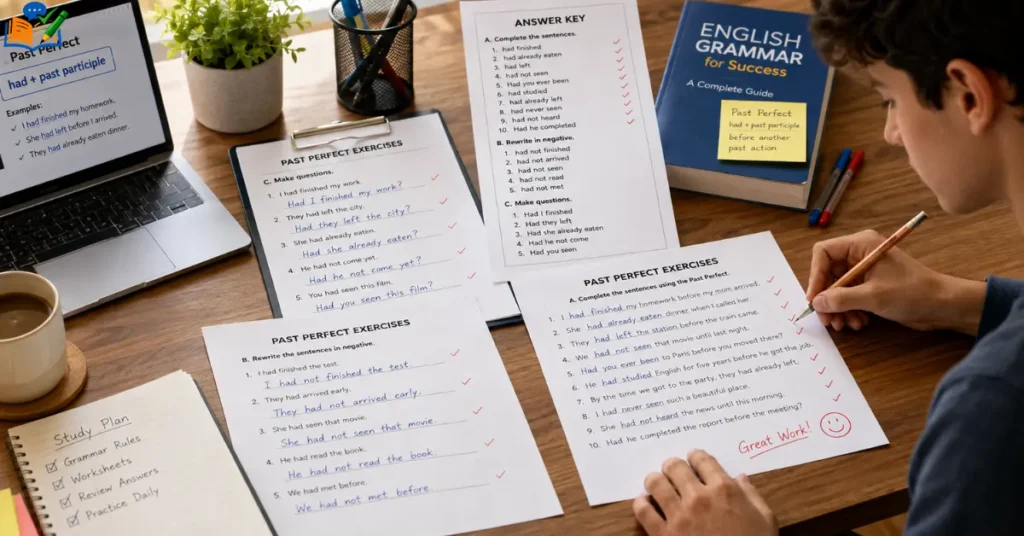 Past Perfect
had + past participle
Examples:
✓ I had finished my homework.
✓ She had left before I arrived.
✓ They had already eaten dinner.
PAST PERFECT EXERCISES
C. Make questions.
1. I had finished my work.
Had I finished my work?
2. They had left the city.
Had they left the city?
3. She had already eaten.
Had she already eaten?
4. He had not come yet.
Had he not come yet?
5. You had seen this film.
Had you seen this film?
ANSWER KEY
A. Complete the sentences.
1. had finished
2. had already eaten
3. had left
4. had not seen
5. Had you ever been
6. had studied
7. had already left
8. had never seen
9. had not heard
10. Had he completed
B. Rewrite in negative.
1. had not finished
2. had not arrived
3. had not seen
4. had not read
5. had not met
C. Make questions.
1. Had I finished
2. Had they left
3. Had she already eaten
4. Had he not come
5. Had you seen
ENGLISH
GRAMMAR
for Success
A Complete Guide
Past Perfect
had + past participle
before another
past action
PAST PERFECT EXERCISES
B. Rewrite the sentences in negative.
1. I had finished the test.
I had not finished the test.
2. They had arrived early.
They had not arrived early.
3. She had seen that movie.
She had not seen that movie.
4. He had read the book.
He had not read the book.
5. We had met before.
We had not met before.
PAST PERFECT EXERCISES
A. Complete the sentences using the Past Perfect.
1. I had finished my homework before my mom arrived.
2. She had already eaten dinner when I called her.
3. They had left the station before the train came.
4. We had not seen that movie until last night.
5. Had you ever been to Paris before you moved there?
6. He had studied English for five years before he got the job.
7. By the time we got to the party, they had already left.
8. I had never seen such a beautiful place.
9. She had not heard the news until this morning.
10. Had he completed the report before the meeting?
Great Work!
Study Plan
Grammar Rules
Worksheets
Review Answers
Practice Daily